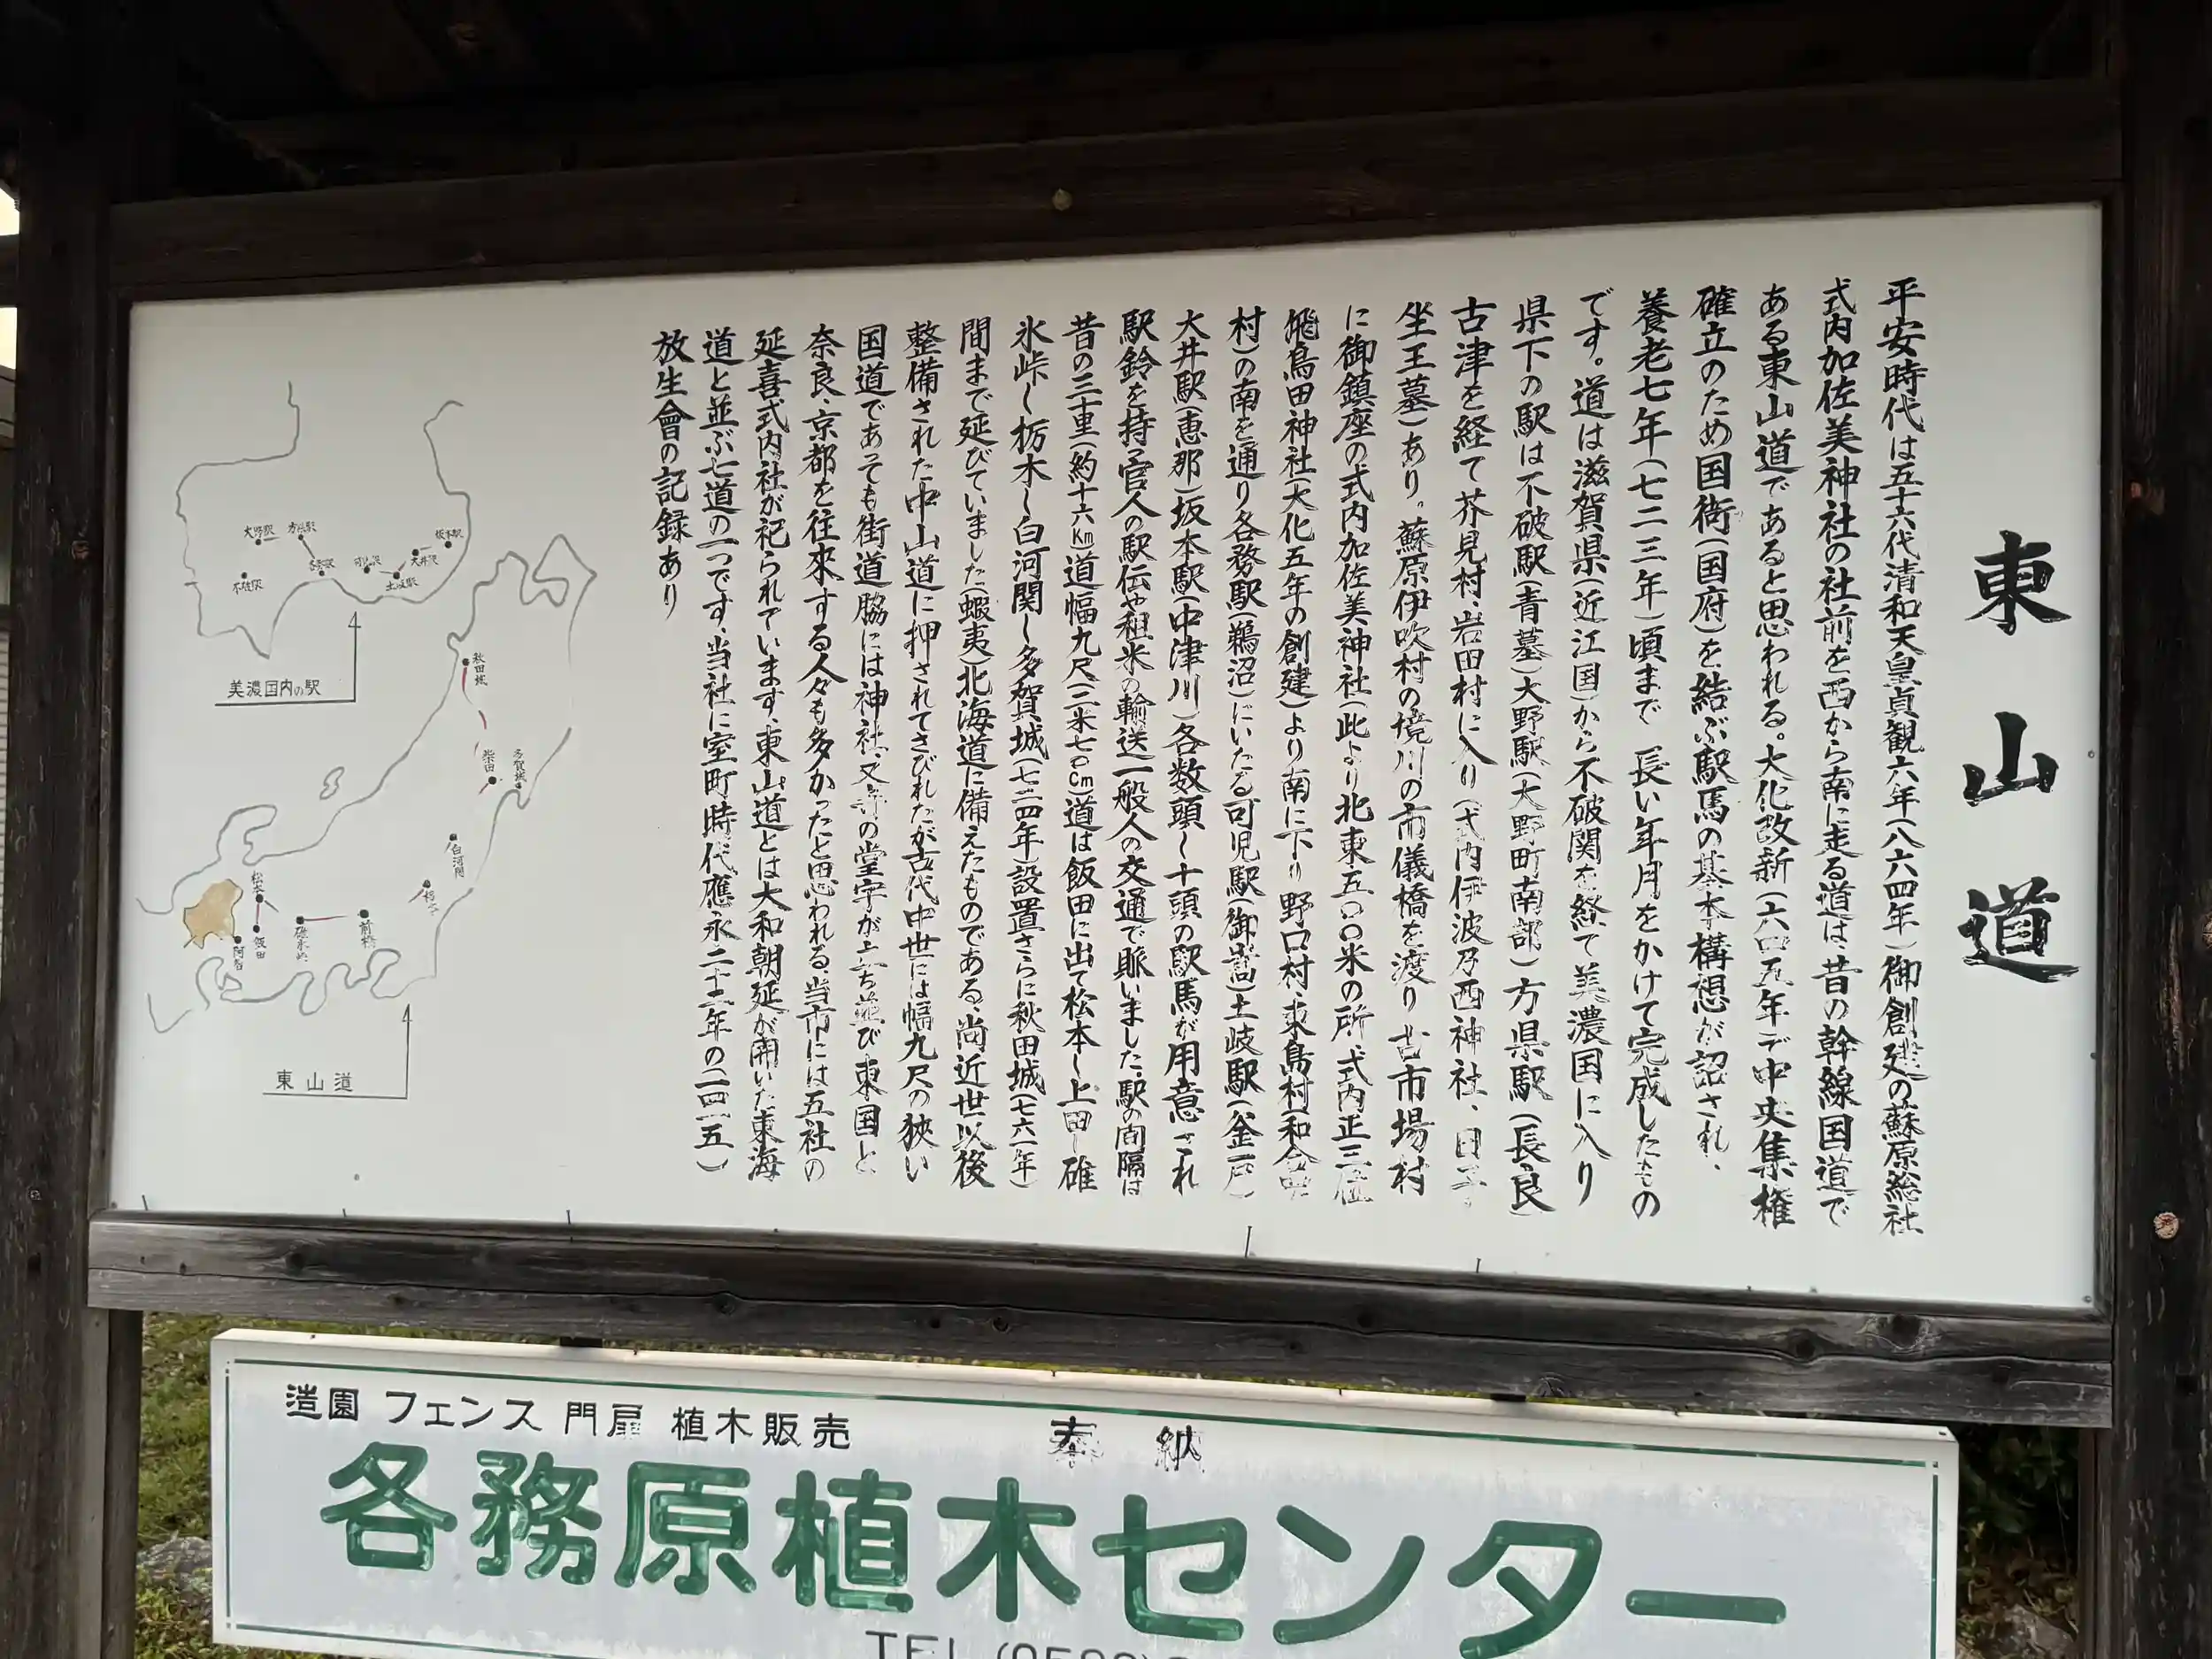 東山道
平安時代は五十六代清和天皇貞観六年(八六四年)御創建の蘇原総社
式内加佐美神社の社前を西から南に走る道は、昔の幹線国道で
ある東山道であると思われる。大化改新(六四五年)で中央集権
確立のため国衙(国府)を結ぶ駅馬の基本構想が詔され、
養老七年(七二三年)頃まで長い年月をかけて完成したもの
です。道は滋賀県(近江国)から不破関を経て美濃国に入り
県下の駅は不破駅(青墓)大野駅(大野町南部)方県駅(長良)
古津を経て芥見村、岩田村に入り(式内伊波乃西神社、日子
坐王墓)あり。蘇原伊吹村の境川の市儀橋を渡り古市場村
に御鎮座の式内加佐美神社(此より北東五〇〇米の所式内正三位
飛鳥田神社(大化五年の創建)より南に下り野口村、東島村(和合
村)の南を通り各務駅(鵜沼)にいたる可児駅(御嵩)土岐駅(釜戸)
大井駅(恵那)坂本駅(中津川)各数頭〜十頭の駅馬が用意され
駅鈴を持つ官人の駅伝や租米の輸送一般人の交通で賑いました。駅の間隔は
昔の三十里(約十六Km)道幅九尺(二米七〇Cm)道は飯田に出て松本〜上田〜碓
氷峠〜栃木〜白河関〜多賀城(七二四年)設置さらに秋田城(七六一年)
間まで延びていました(蝦夷)北海道に備えたものである、尚近世以後
整備された中山道に押されてさびれたが古代中世には幅九尺の狭い
国道であっても街道脇には神社、又寺の堂宇が立ち並び東国と
奈良、京都を往来する人々も多かったと思われる、当市には五社の
延喜式内社が祀られています、東山道とは大和朝廷が開いた東海
道と並ぶ七道の一つです、当社に室町時代應永二十二年の(一四一五)
放生會の記録あり
大野駅
方県駅
不破駅
各務駅
可児駅
土岐駅
大井駅
坂本駅
美濃国内の駅
秋田城
柴田
多賀城
白河関
栃木
前橋
碓氷峠
松本
飯田
阿智
東山道
造園 フェンス 門扉 植木販売 奉納
各務原植木センター